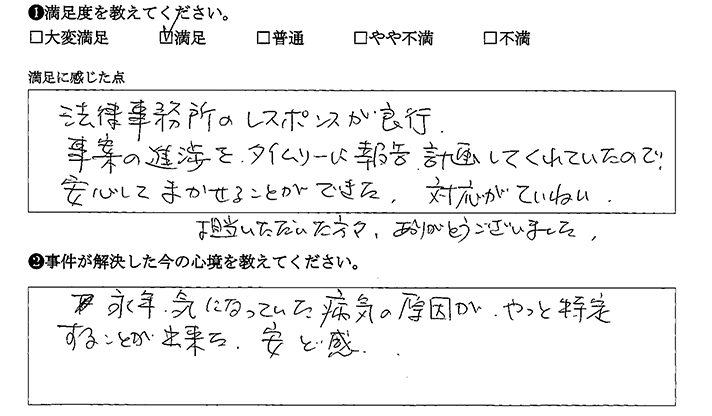 ❶満足度を教えてください。
□大変満足 ☑満足 □普通 □やや不満 □不満
満足に感じた点
法律事務所のレスポンスが良行.
事案の進渉を、タイムリーに報告、計画してくれていたので、
安心してまかせることができた。対応がていねい.
担当いただいた方々、ありがとうございました。
❷事件が解決した今の心境を教えてください。
永年、気になっていた病気の原因が、やっと特定
することが出来た。安ど感.